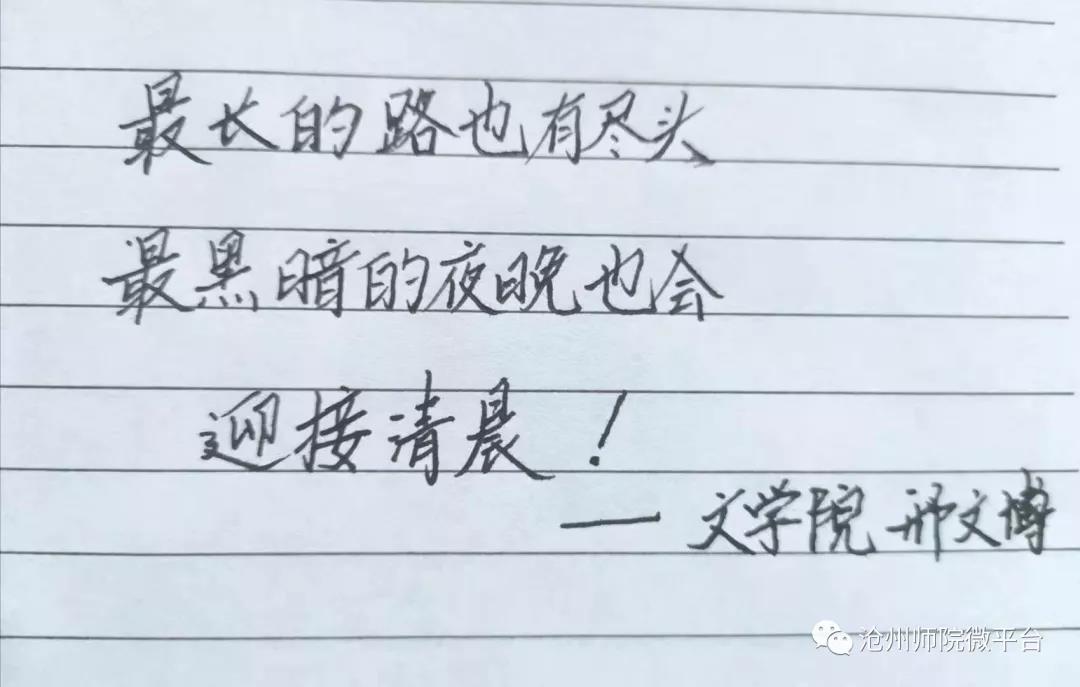 最长的路也有尽头
最黑暗的夜晚也会
迎接清晨！
— 文学院 邢文博
沧州师院微平台